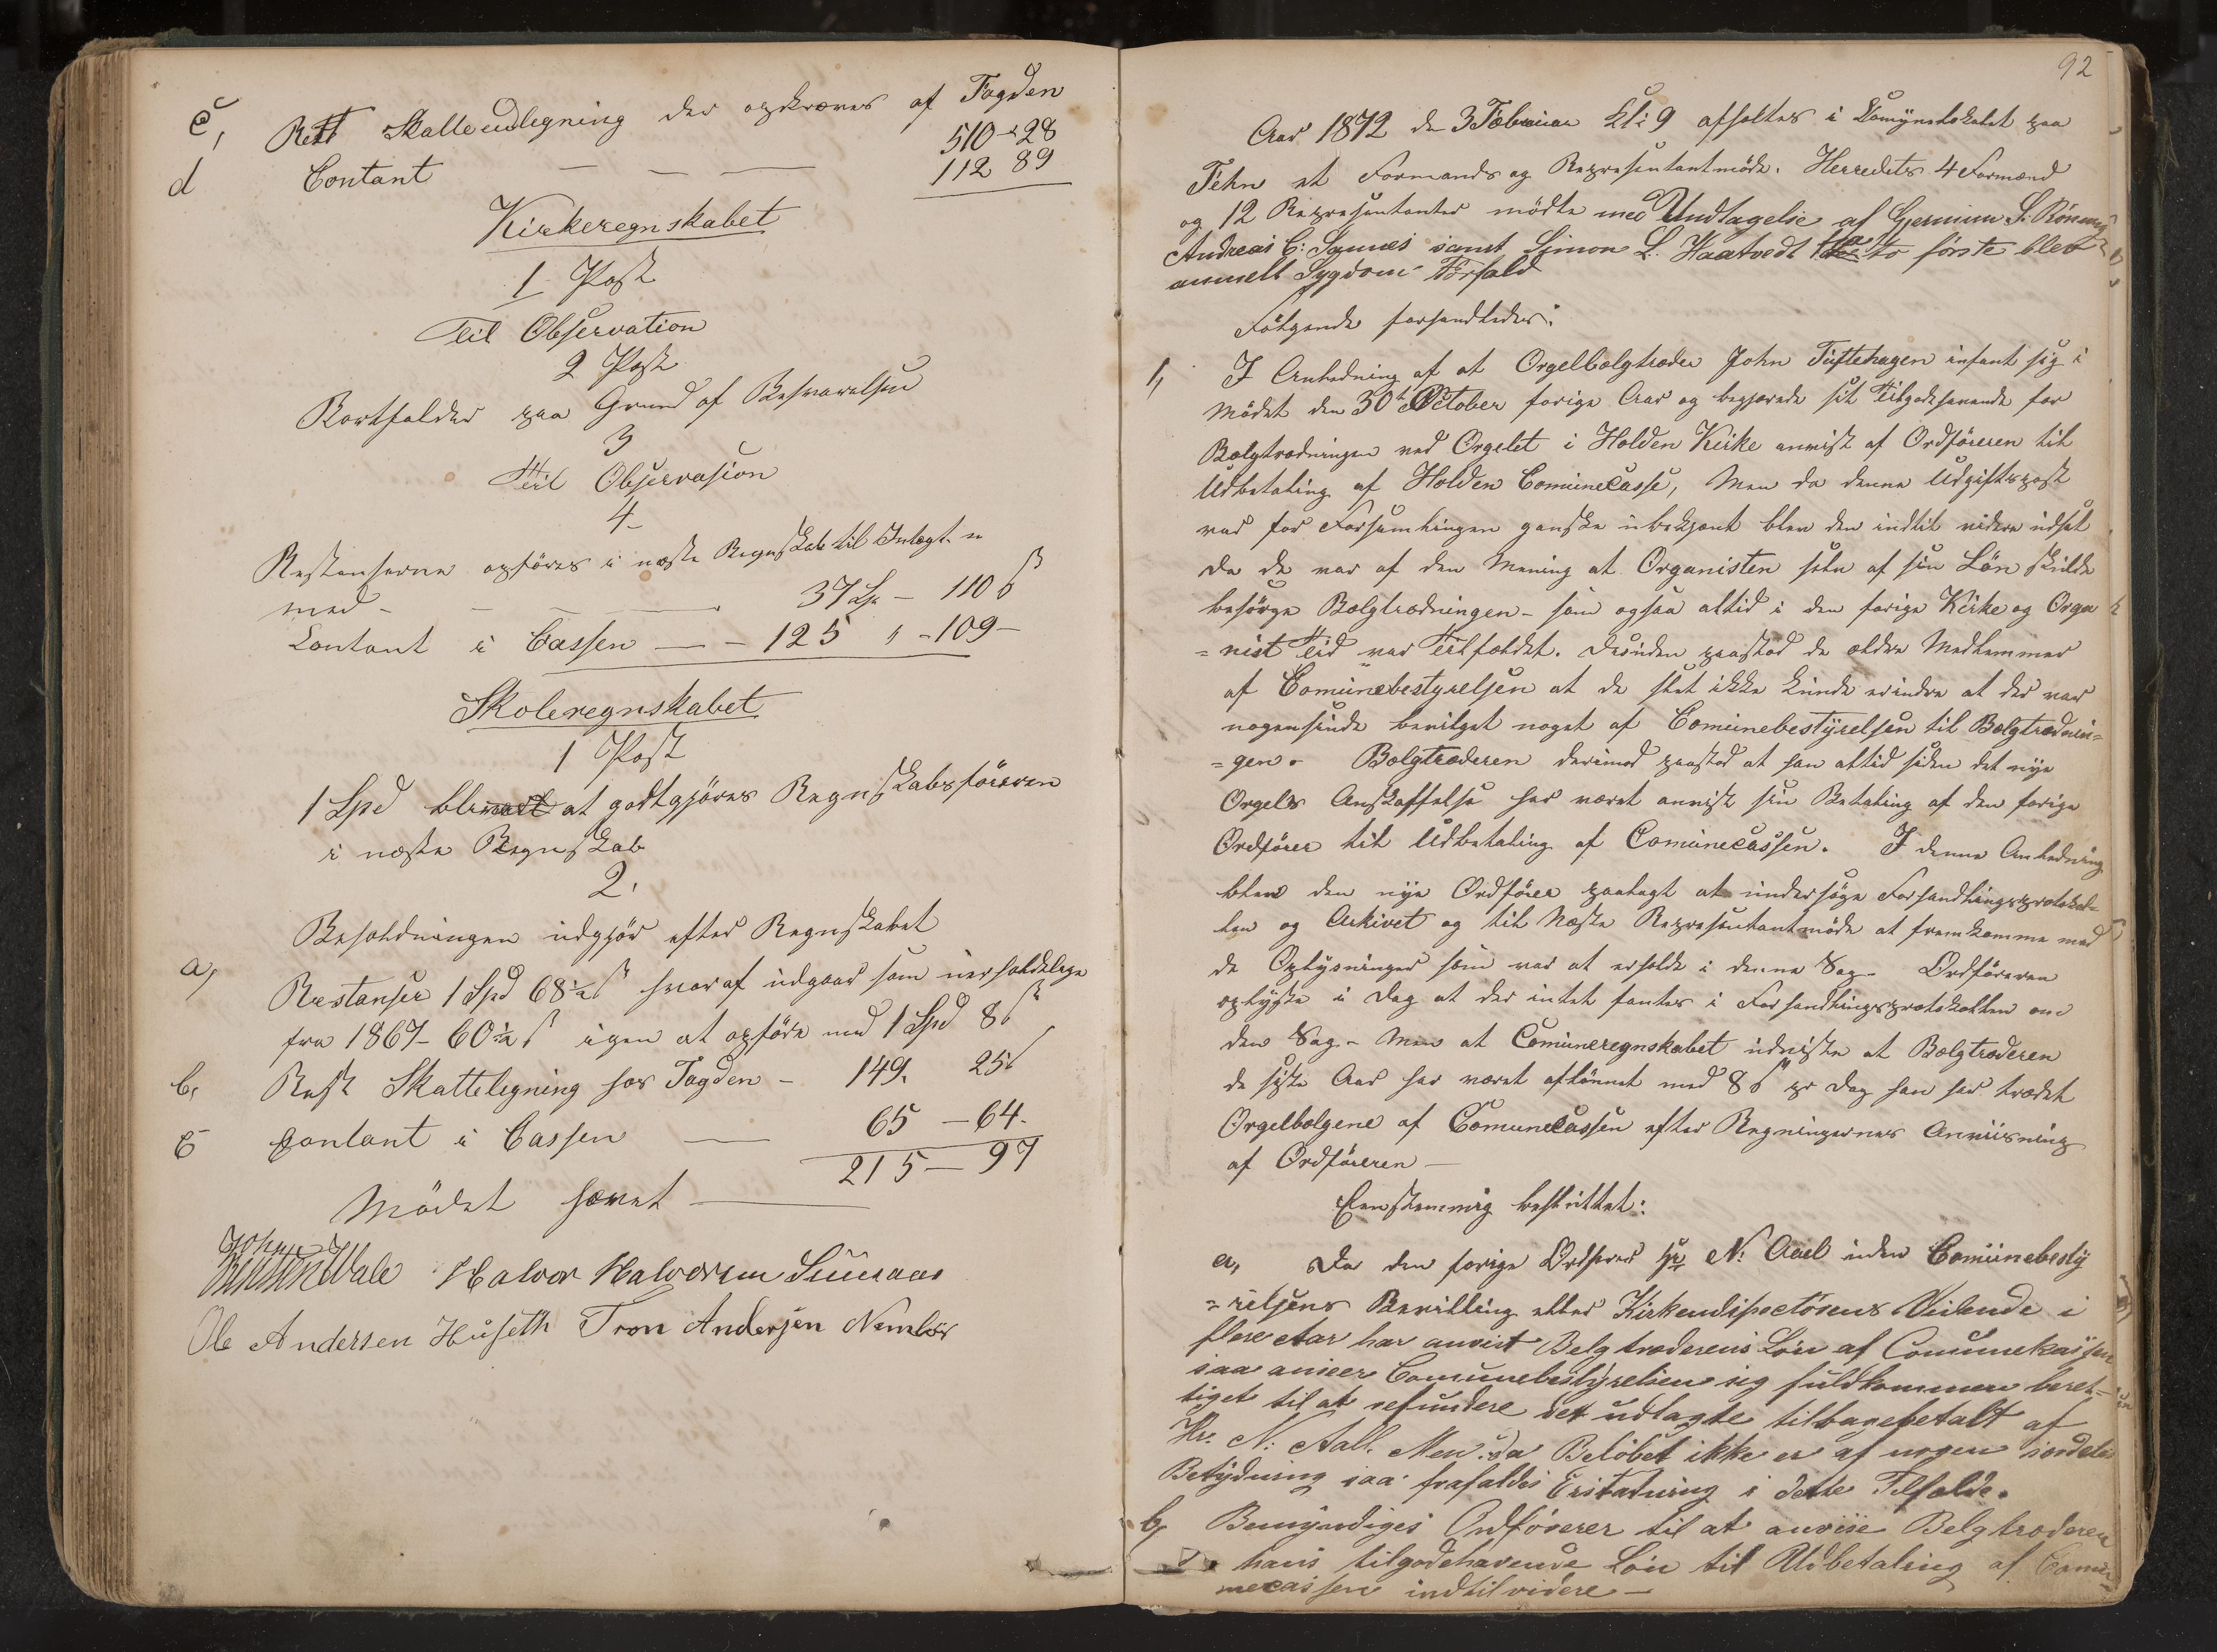 c, Rest Skatteudligning der opkræves af Fogden 510 - 28
d Contant — — — 112 89
Kirkeregnskabet
1 Post
Til Observation
2 Post
Bortfalder paa Grund af Besvarelsen
3
Til Observasion
4
Restanserne opføres i næste Regnskab til Indtægt
med - - — 37 Sp - 110 ß
Contant i Cassen — - 125 " - 109 -
Skoleregnskabet
1 Post
1 Spd blev at godtgjøres Regnskabsføreren
i næste Regnskab
2.
Beholdningen udgjør efter Regnskabet
a, Restanser 1 Spd 68½ ß hvoraf udgaar som uerholdelige
fra 1867 - 60½ ß igen at opføre med 1 Spd 8 ß
b, Rest Skatteligning hos Fogden - 149. 25 ß
c Contant i Cassen — 65 - 64.
215 - 97
Mødet hævet —
John Wale Halvor Halvorsen
Ole Andersen Huseth Tron Andersen Namløs
92
Aar 1872 den 3 Februar Kl: 9 afholtes i Comunelokalet paa
Tehn et Formands og Representantmøde. Herredets 4 Formænd
og 12 Representanter mødte med Undtagelse af Gjermun S. Rønning
Andreas C: Synnes samt Simon L. Haatvedt de to første blev
anmelt Sygdoms Forfald
Følgende forhandledes:
1, I Anledning af at Orgelbælgtræder John Tuftehagen infant sig i
Mødet den 30te October forige Aar og begjærede sit Tilgodehavende for
Bælgtrædningen ved Orgelet i Holden Kirke anvist af Ordføreren til
Udbetaling af Holden Comunecasse, Men da denne Udgiftspost
var for Forsamlingen ganske ubekjent blev den indtil videre udsat
da de var af den Mening at Organisten selv af sin Løn skulde
besørge Bælgtrædningen - som ogsaa altid i den forige Kirke og Orga
= nist Tid var Tilfældet. Desuden paastod de ældre Medlemmer
af Comunebestyrelsen at de slet ikke kunde erindre at der var
nogensinde bevilget noget af Comunebestyrelsen til Bælgtrædnin=
= gen. Bælgtræderen derimod paastod at han altid siden det nye
Orgels Anskaffelse har været anvist sin Betaling af den forige
Ordfører til Udbetaling af Comunecassen. I denne Anledning
blev den nye Ordfører paalagt at undersøge Forhandlingsprotokol=
len og Arkivet og til Næste Representantmøde at fremkomme med
de Oplysninger som var at erholde i denne Sag - Ordføreren
oplyste i Dag at der intet fantes i Forhandlingsprotokollen om
den Sag - Men at Comuneregnskabet udviste at Bælgtræderen
de siste Aar har været aflønnet med 8 ß pr Dag han har trædet
Orgelbælgene af Comunecassen efter Regningernes Anviisning
af Ordføreren —
Eenstemmig besluttet:
a, Da den forige Ordfører Hr N: Aall uden Comunebesty
= relsens Bevilling eller Kirkendspectørens Vidende i
flere Aar har anvist Belgtræderens Løn af Comunekassen
saa anseer Comunebestyrelsen sig fuldkommen beret=
tiget til at refundere det udlagte tilbagebetalt af
Hr. N: Aall. Men da Beløbet ikke er af nogen særdeles
Betydning saa frafaldes Erstatning i dette Tilfælde.
b, Bemyndiges Ordførerer til at anvise Belgtræderen
hans tilgodehavende Løn til Udbetaling af Comu
necassen indtilvidere —